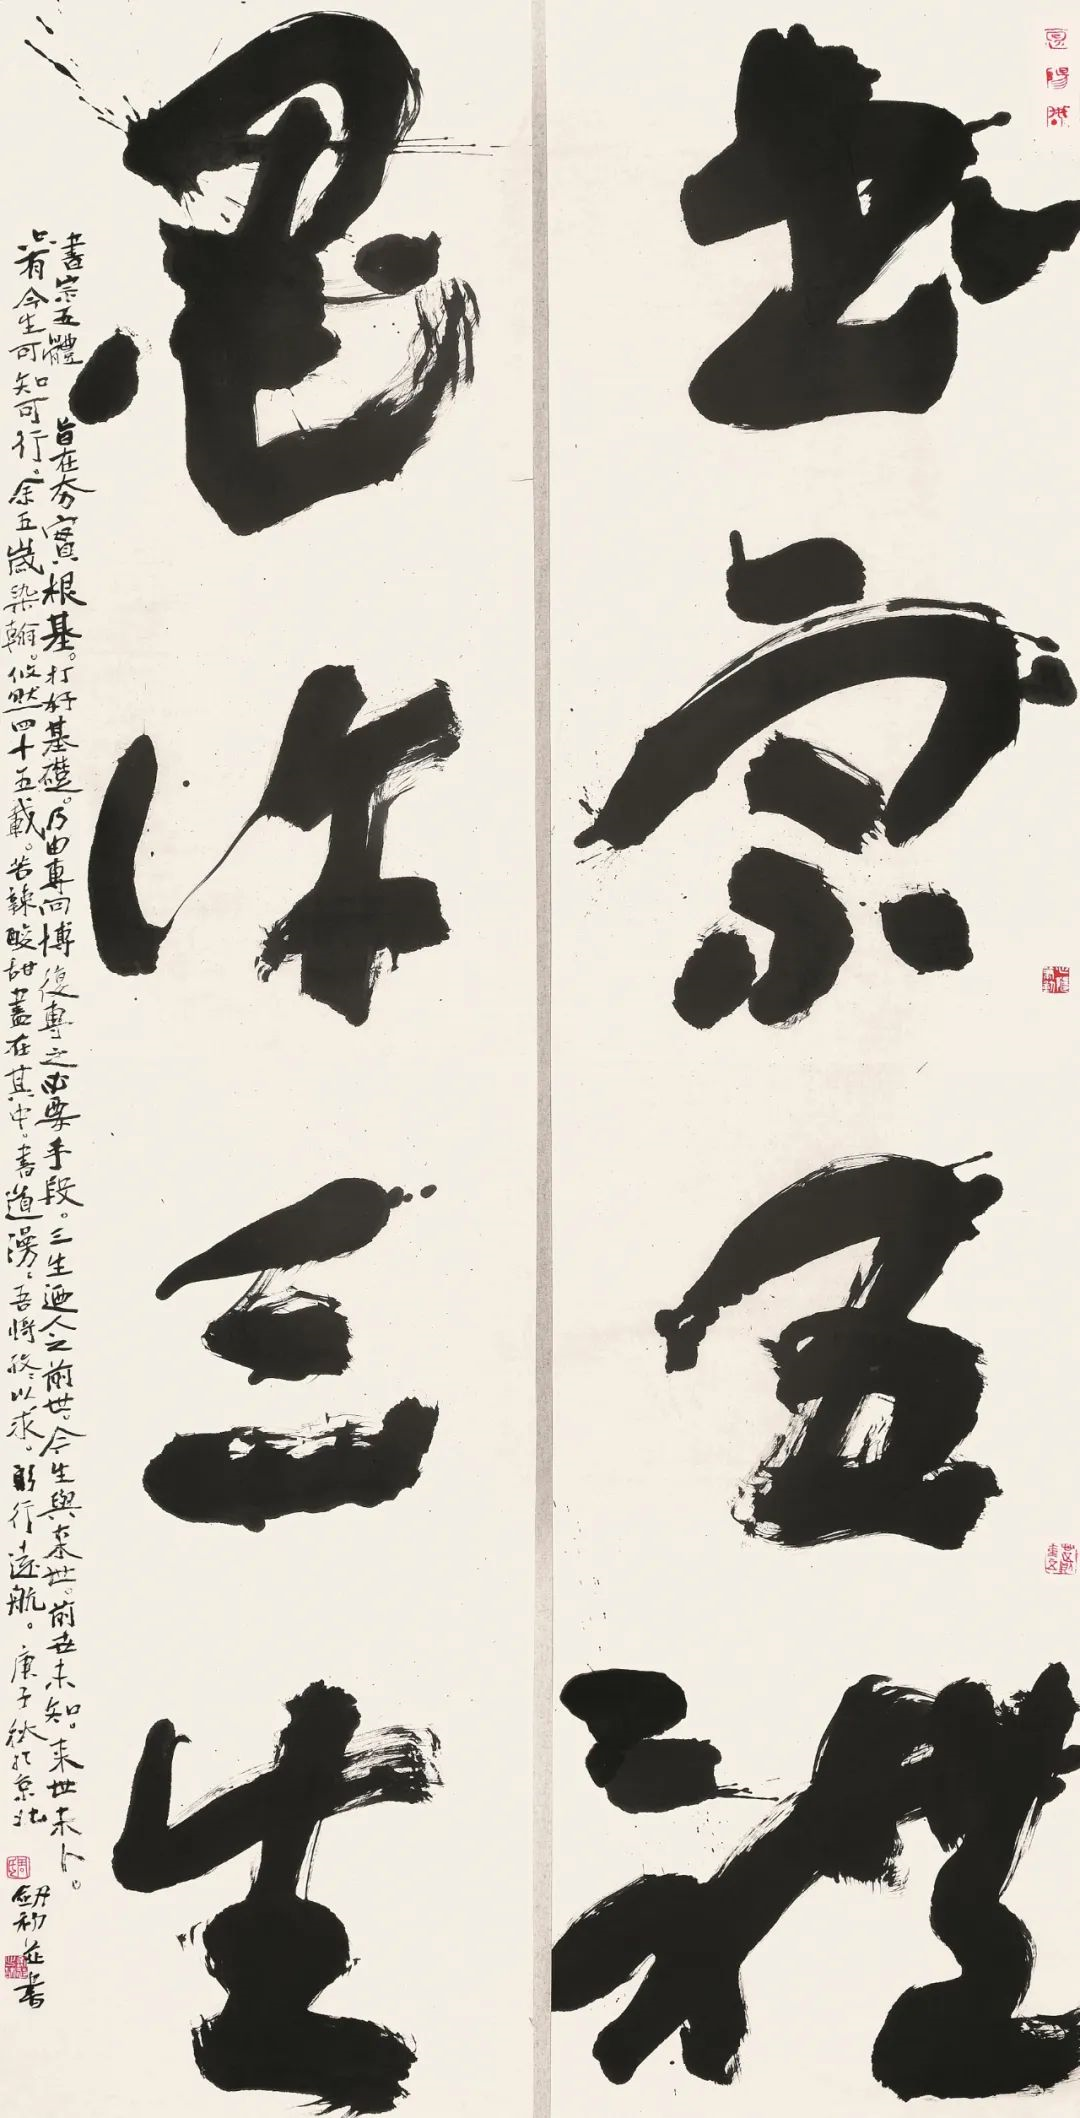 書宗五體
墨許三生
書宗五體 旨在夯實根基。打好基礎。乃由專向博復專之必要手段。三生迺人之前世。今生與來世。前世未知。來世未卜。
只有今生可知可行。余五歲染翰。倏然四十五載。苦辣酸甜盡在其中。書道漫漫、吾將孜孜以求。躬行遠航。庚子秋於京北
劒初並書